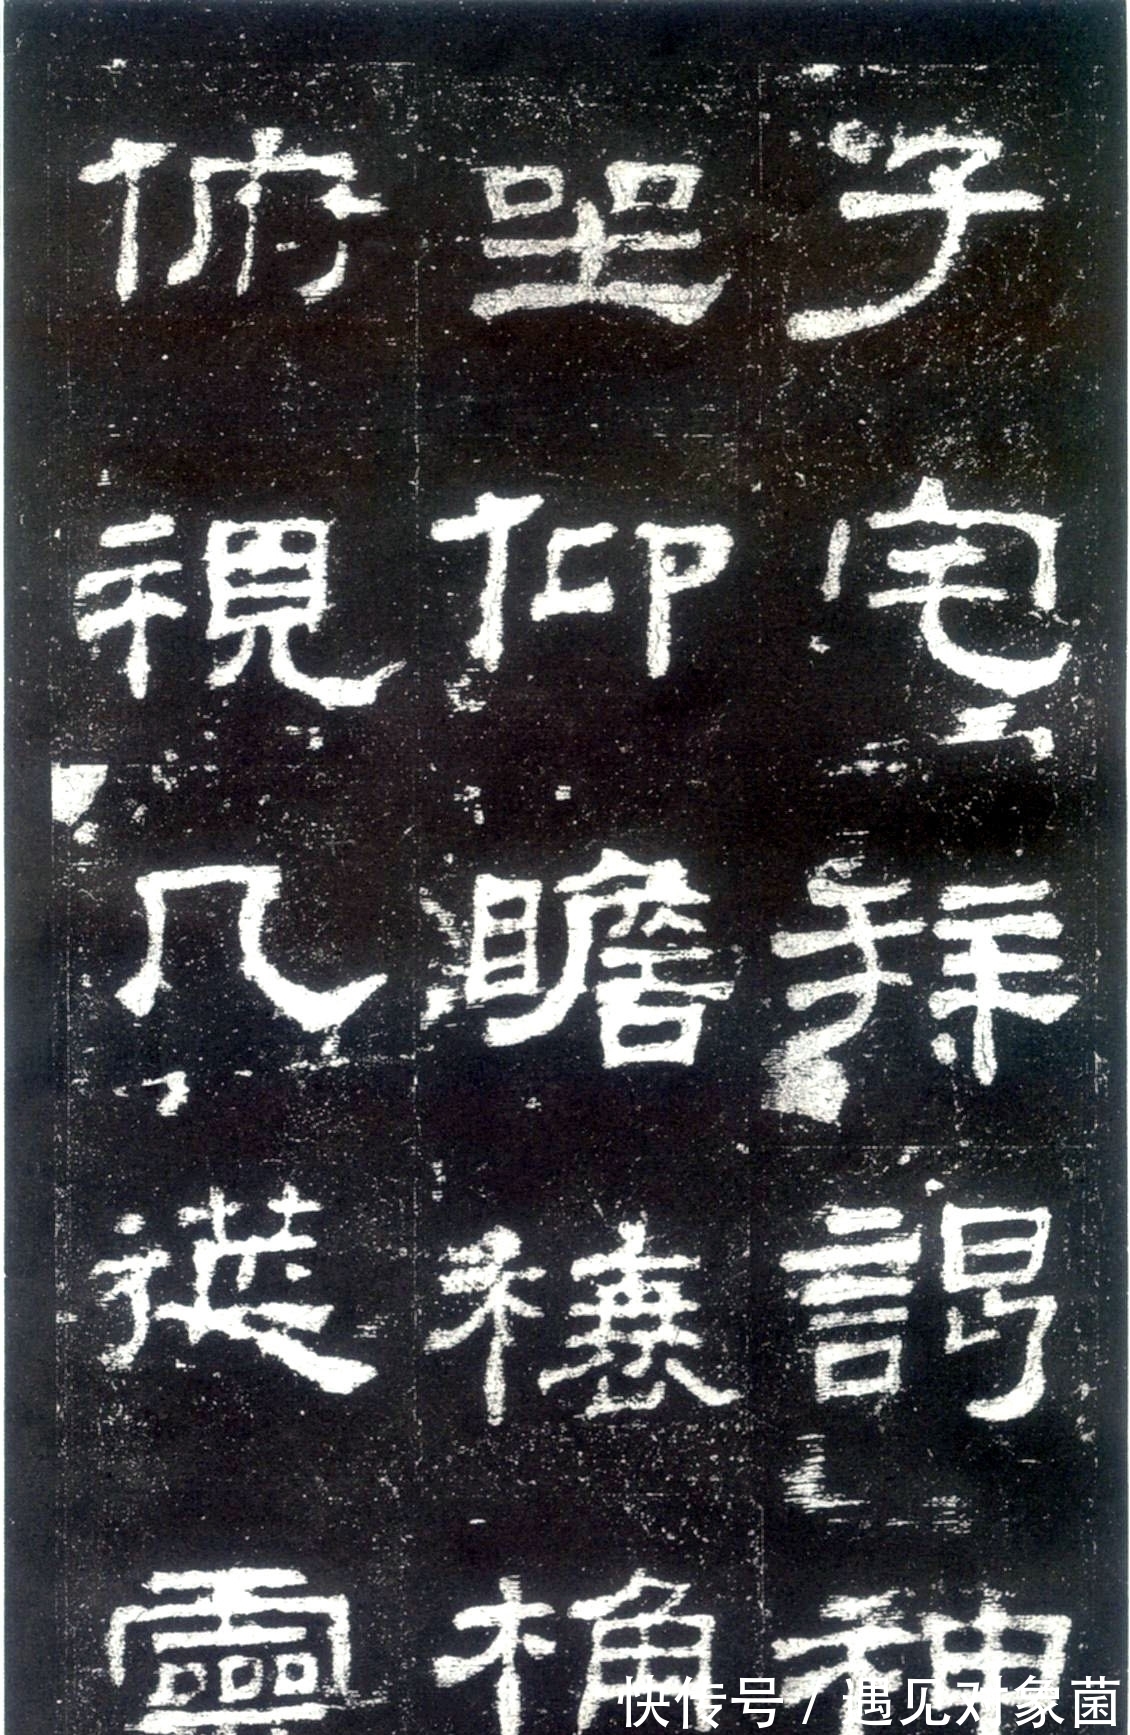 子宅拜謁神
坐仰瞻榱桷
俯視几筵靈
快传号 / 遇见对象菌